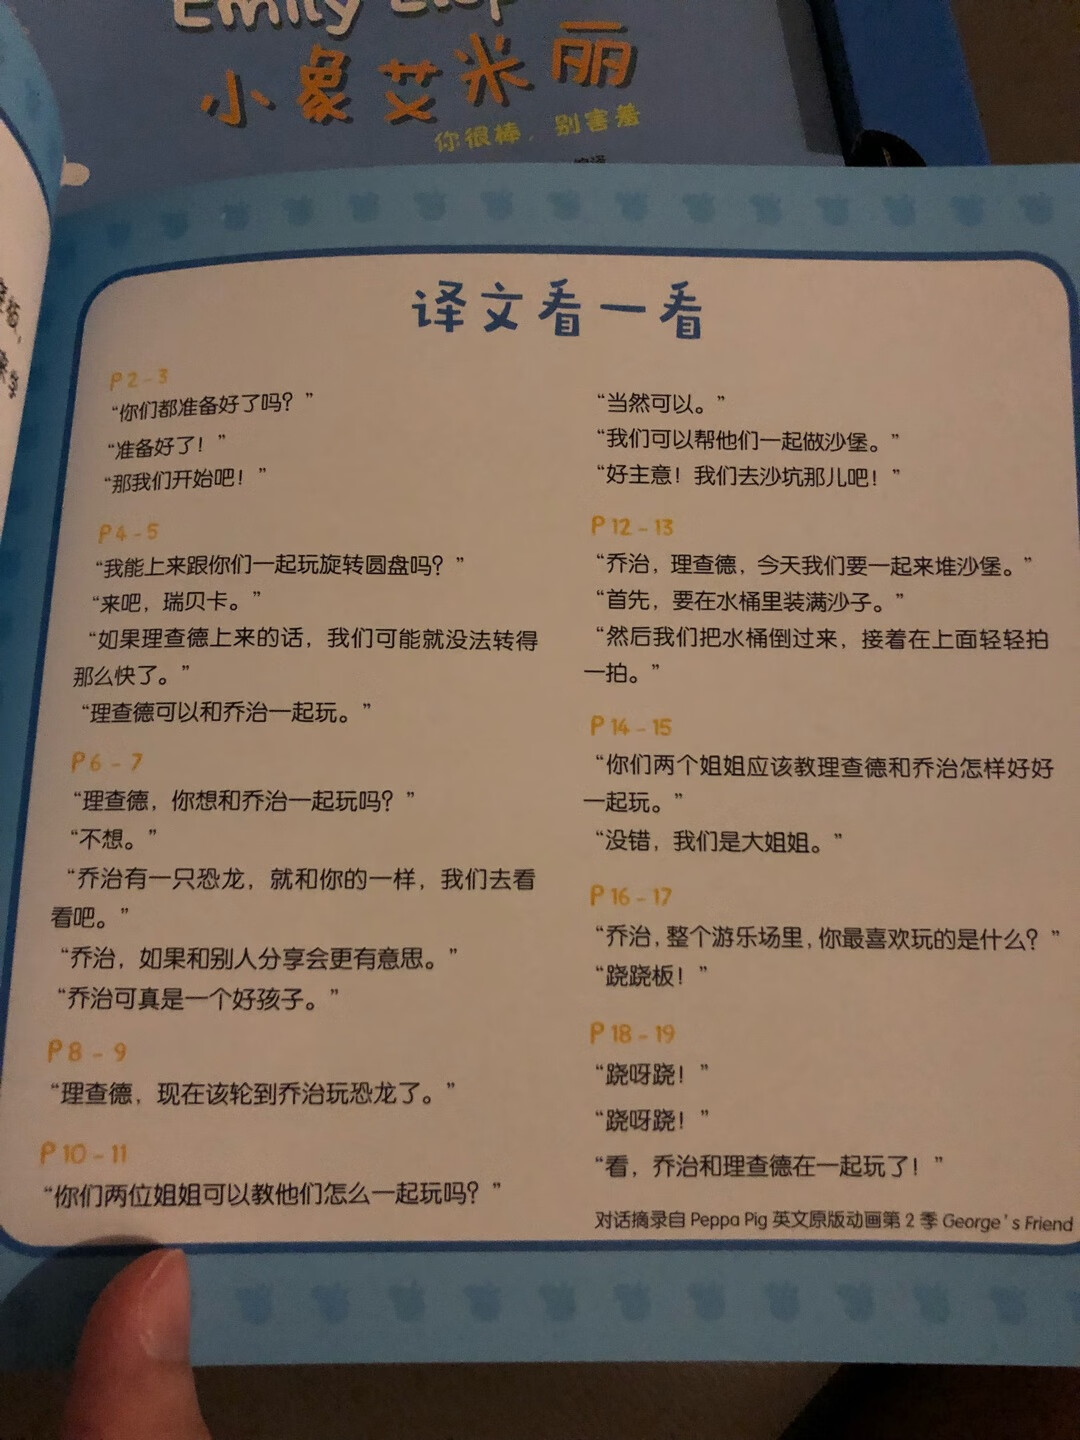 Emily Elep
小象艾米丽
你很棒，别害羞
编译
译文看一看
P2-3
“你们都准备好了吗？”
“准备好了！”
“那我们开始吧！”
P4-5
“我能上来跟你们一起玩旋转圆盘吗？”
“来吧，瑞贝卡。”
“如果理查德上来的话，我们可能就没法转得
那么快了。”
“理查德可以和乔治一起玩。”
P6-7
“理查德，你想和乔治一起玩吗？”
“不想。”
“乔治有一只恐龙，就和你的一样，我们去看
看吧。”
“乔治，如果和别人分享会更有意思。”
“乔治可真是一个好孩子。”
P8-9
“理查德，现在该轮到乔治玩恐龙了。”
P10-11
“你们两位姐姐可以教他们怎么一起玩吗？”
“当然可以。”
“我们可以帮他们一起做沙堡。”
“好主意！我们去沙坑那儿吧！”
P12-13
“乔治，理查德，今天我们要一起来堆沙堡。”
“首先，要在水桶里装满沙子。”
“然后我们把水桶倒过来，接着在上面轻轻拍
一拍。”
P14-15
“你们两个姐姐应该教理查德和乔治怎样好好
一起玩。”
“没错，我们是大姐姐。”
P16-17
“乔治，整个游乐场里，你最喜欢玩的是什么？”
“跷跷板！”
P18-19
“跷呀跷！”
“跷呀跷！”
“看，乔治和理查德在一起玩了！”
对话摘录自 Peppa Pig 英文原版动画第 2 季 George's Friend